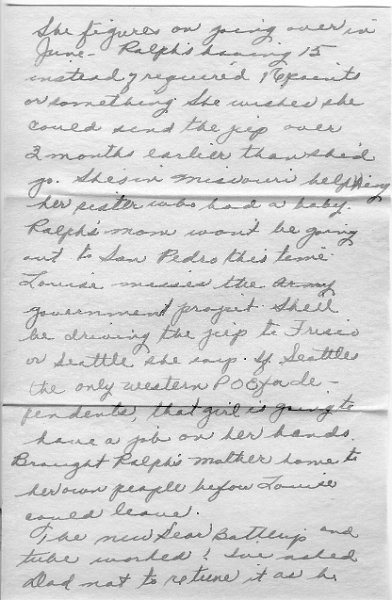 She figures on going over in
June - Ralph's having 15
instead of required 16 points
or something She wishes she
could send the jeep over
2 months earlier than she'd
go. She's in Missouri helping
her sister who had a baby.
Ralph's mom won't be going
out to San Pedro this time
Louise misses the Army
government project She'll
be driving the jeep to Frisco
or Seattle she says. If Seattles
the only western POE for de-
pendents, that girl is going to
have a job on her hands.
Brought Ralph's mother home to
her own people before Louise
could leave.
The new Sear Battery and
tube worked! I've asked
Dad not to retune it as he